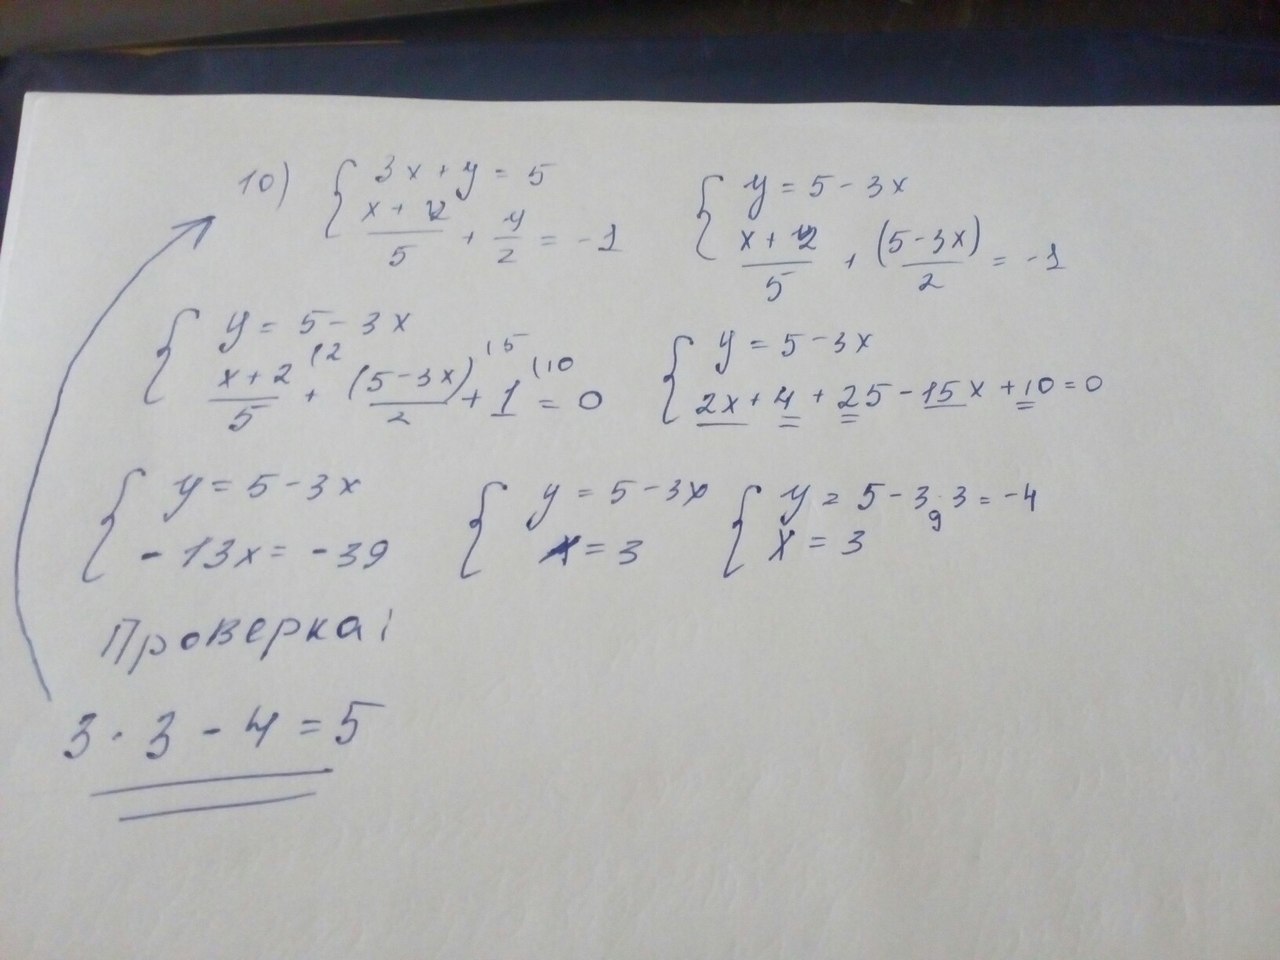 10) { 3x + y = 5
(x + 2)/5 + y/2 = -1
{ y = 5 - 3x
(x + 2)/5 + (5-3x)/2 = -1
{ y = 5 - 3x
(x + 2)/5 (2 + (5-3x)/2 (5 + 1 (10 = 0
{ y = 5 - 3x
2x + 4 + 25 - 15x + 10 = 0
{ y = 5 - 3x
- 13x = - 39
{ y = 5 - 3x
x = 3
{ y = 5 - 3 · 3 = -4
9
x = 3
Проверка:
3 · 3 - 4 = 5